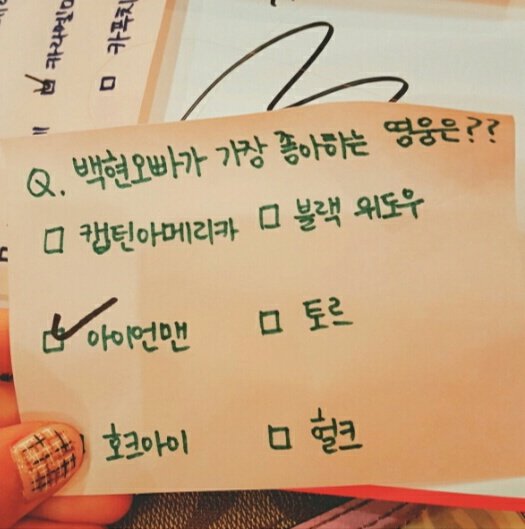 카라멜
카푸치
Q. 백현오빠가 가장 좋아하는 영웅은??
□ 캡틴아메리카 □ 블랙 위도우
☑ 아이언맨 □ 토르
호크아이 □ 헐크